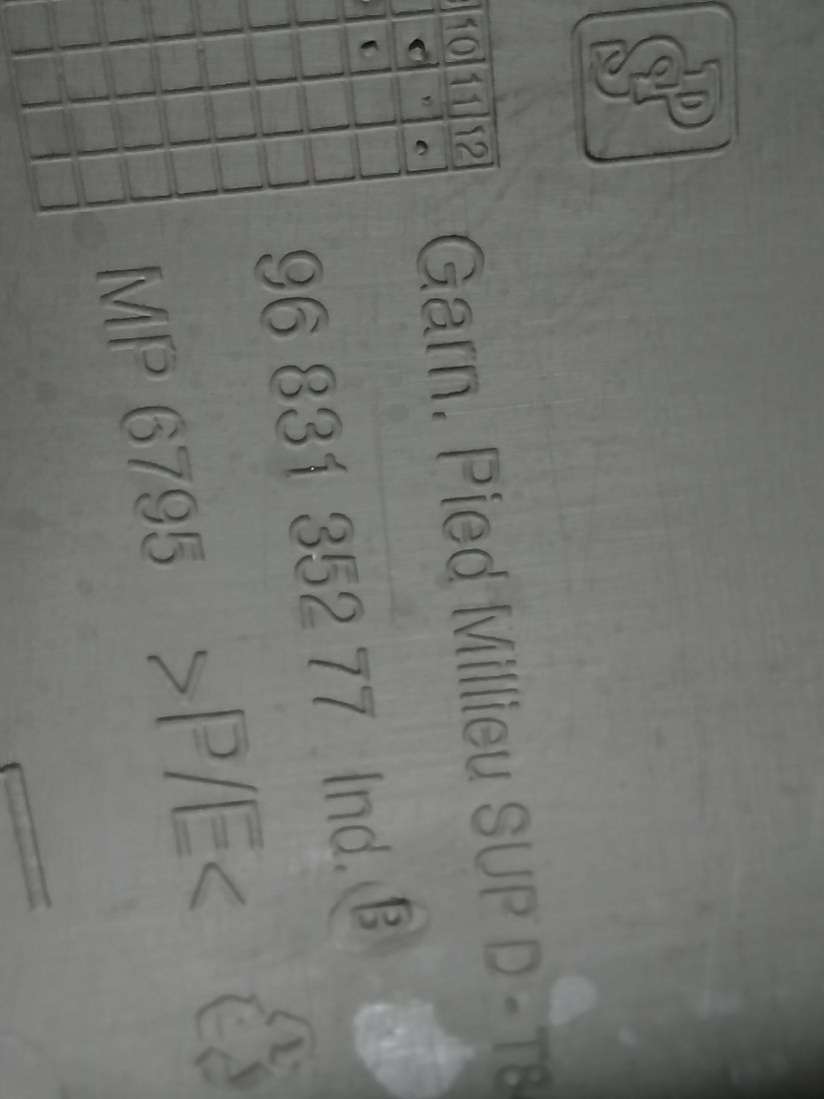 PSA
10 11 12
Garn. Pied Millieu SUP D - T8
96 831 352 77 Ind. B
MP 6795 >P/E<